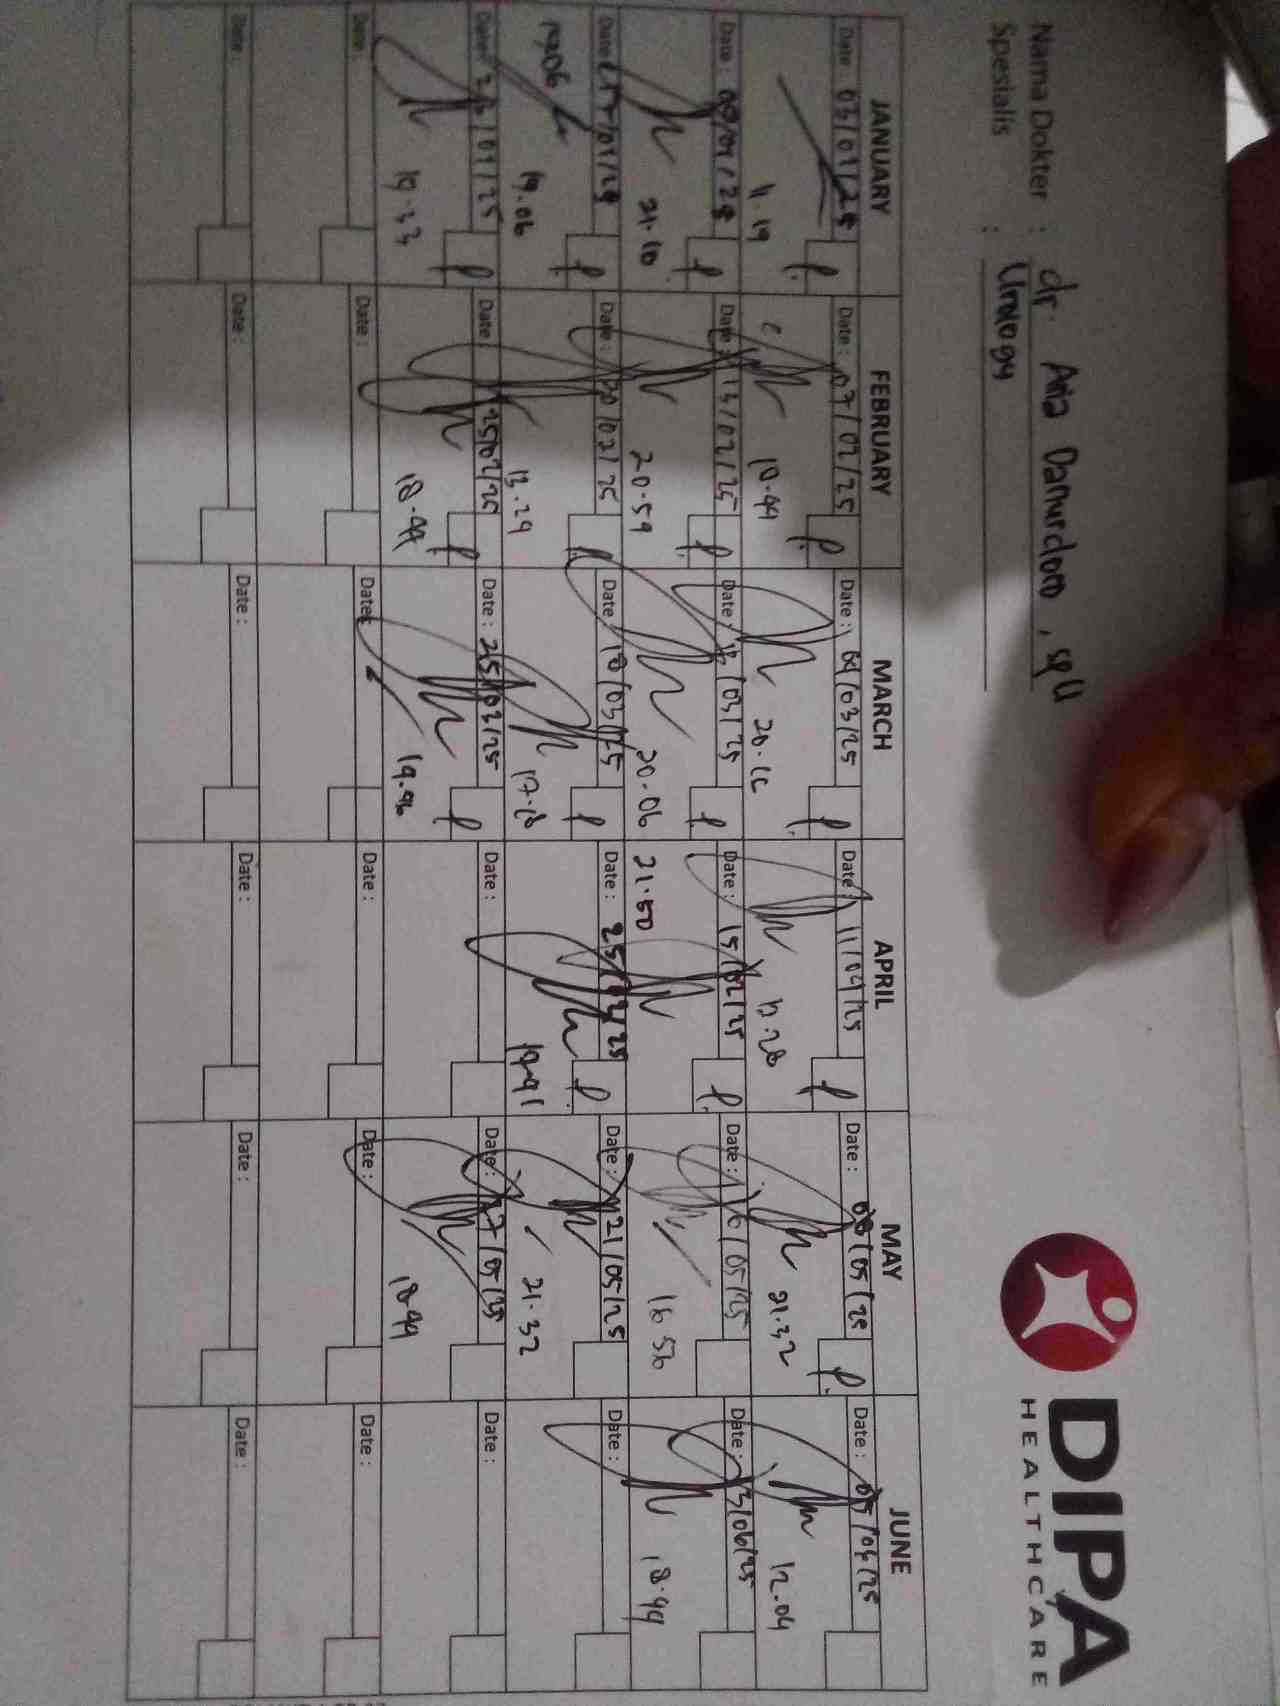 DIPA
HEALTHCARE
Nama Dokter : dr. Aria Danurdoro, SpU
Spesialis : Urology
JANUARY FEBRUARY MARCH APRIL MAY JUNE
Date : 03/01/25 Date : 07/02/25 Date : 04/03/25 Date : 11/04/25 Date : 08/05/25 Date : 05/04/25
P. P. P. P P.
11.19 18.44 20.16 17.28 21.32 12.04
Date : 08/01/25 Date : 13/02/25 Date : 12/03/25 Date : 15/02/25 Date : 16/05/25 Date : 13/06/25
P. P. P. P.
21.10 20.59 20.06 21.50 16.56 18.44
Date : 17/01/25 Date : 20/02/25 Date : 18/03/25 Date : Date : 21/05/25 Date :
P. P. P. P.
19.06 19.06 13.29 17.18 21.32
Date : Date : 25/02/25 Date : 25/03/25 Date : Date : 27/05/25 Date :
P P. P.
19.33 18.44 19.46 18.44
Date : Date : Date : Date : Date : Date :
Date : Date : Date : Date : Date : Date :